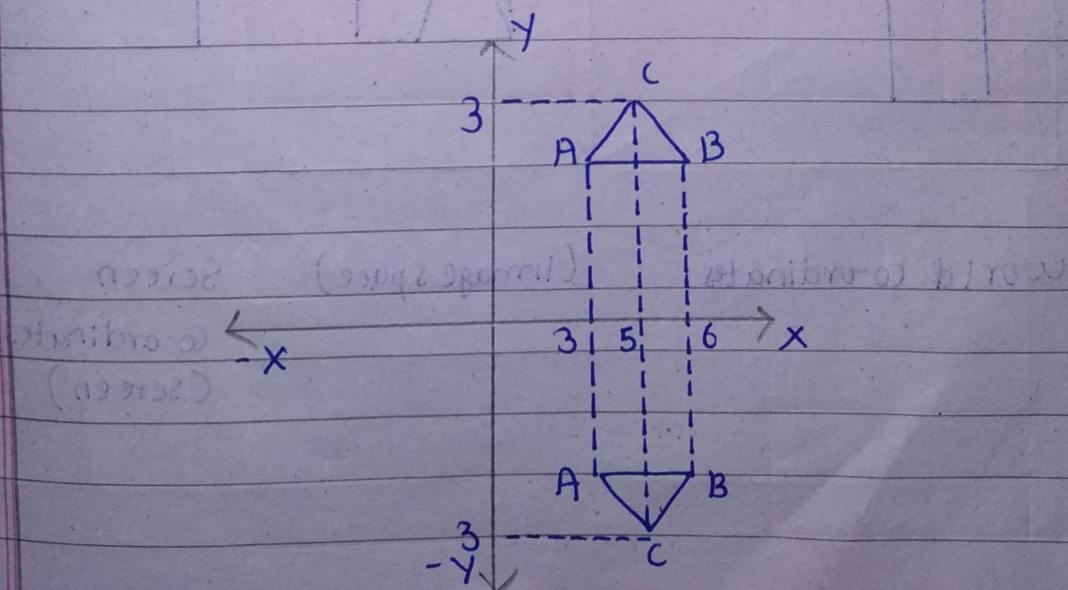 Y
C
3
A B
3 5 6 X
-X
A B
3
C
-Y